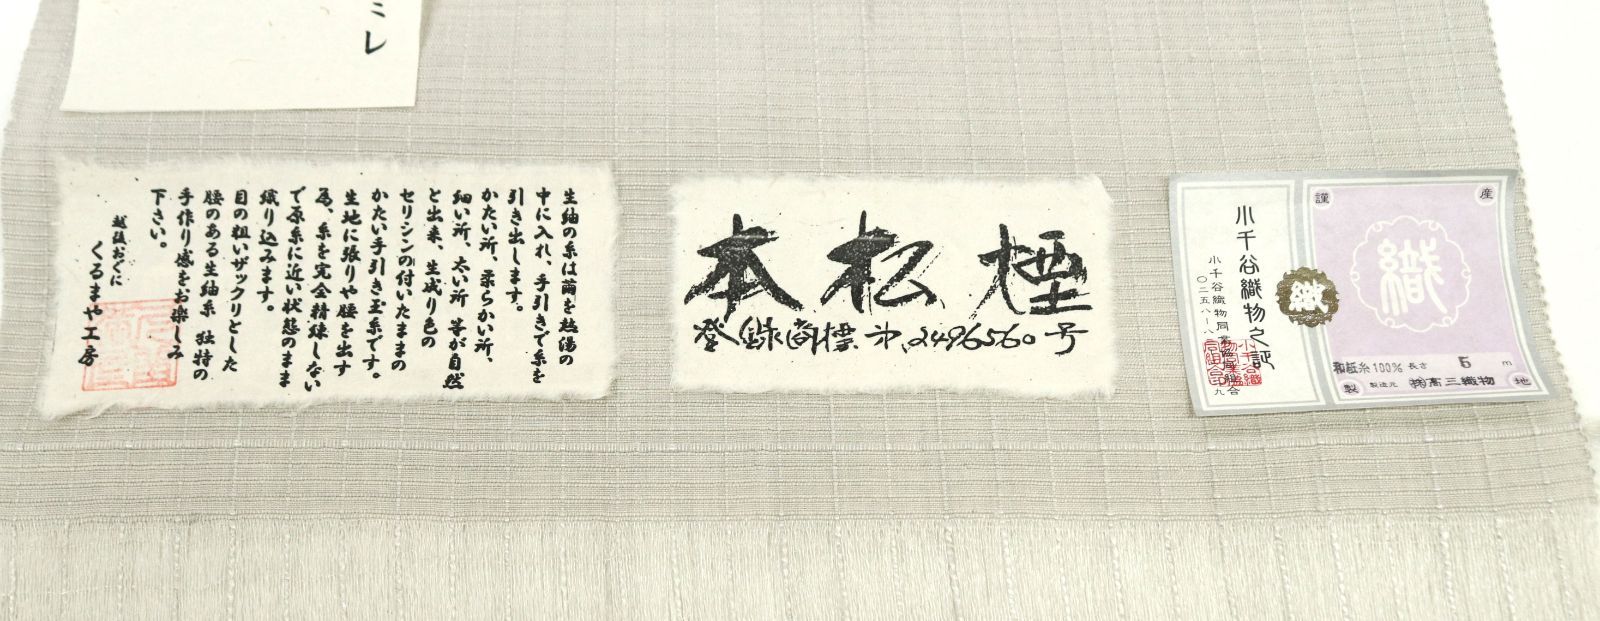 ミレ
生紬の糸は繭を熱湯の
中に入れ、手引きで糸を
引き出します。
かたい所、柔らかい所、
細い所、太い所 等が自然
と出来、生成り色の
セリシンの付いたままの
かたい手引き玉糸です。
生地に張りや腰を出す
為、糸を完全精練しない
で原糸に近い状態のまま
織り込みます。
目の粗いザックリとした
腰のある生紬糸 独特の
手作り感をお楽しみ
下さい。
越後おぐに
くるまや工房
本松煙
登録商標 第2496560号
小千谷織物之証
小千谷織物同業協同組合
織
謹
産
織
和紙糸100% 長さ 5 m
製
製造元 ㈱高三織物
地